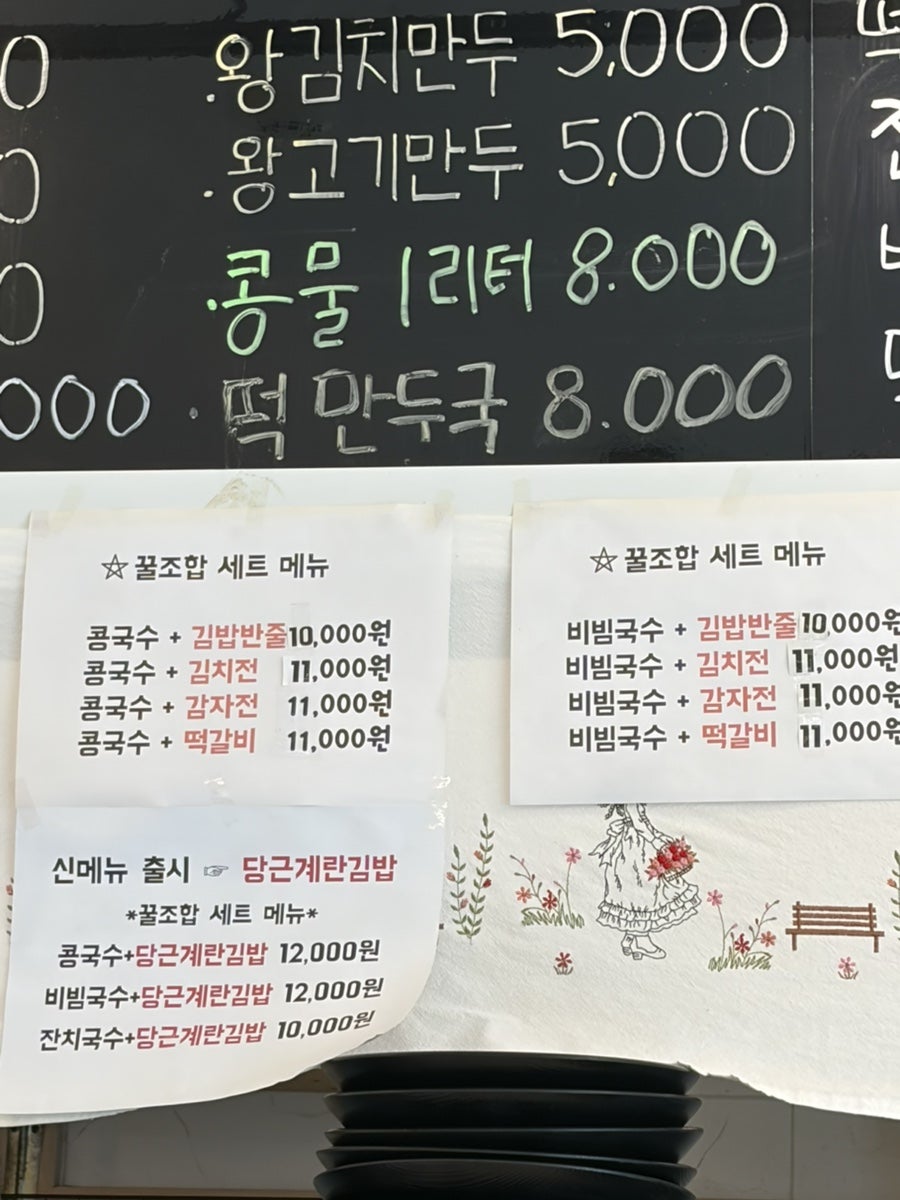 .왕김치만두 5,000
.왕고기만두 5,000
.콩물 1리터 8.000
000 · 떡만두국 8.000
☆꿀조합 세트 메뉴
콩국수 + 김밥반줄 10,000원
콩국수 + 김치전 11,000원
콩국수 + 감자전 11,000원
콩국수 + 떡갈비 11,000원
☆꿀조합 세트 메뉴
비빔국수 + 김밥반줄 10,000원
비빔국수 + 김치전 11,000원
비빔국수 + 감자전 11,000원
비빔국수 + 떡갈비 11,000원
신메뉴 출시 ☞ 당근계란김밥
*꿀조합 세트 메뉴*
콩국수+당근계란김밥 12,000원
비빔국수+당근계란김밥 12,000원
잔치국수+당근계란김밥 10,000원